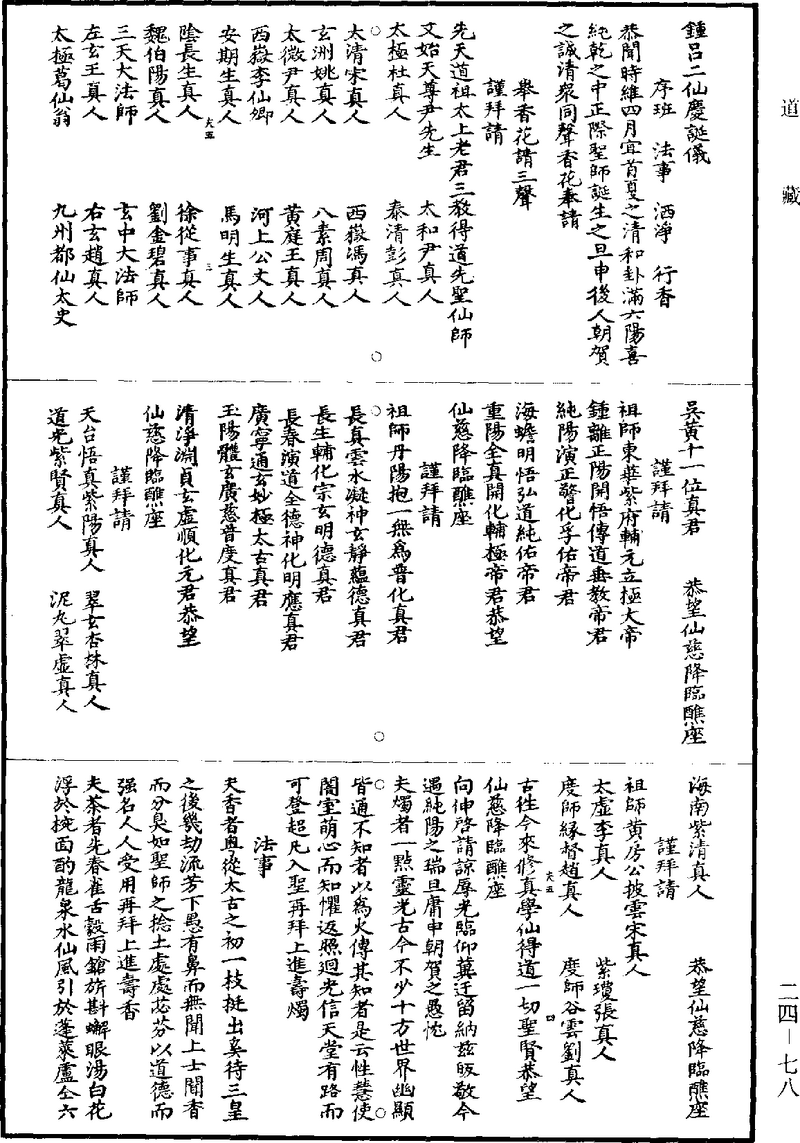 道藏
鍾呂二仙慶誕儀
序班　法事　洒淨　行香
恭聞時維四月宜首夏之清和卦滿六陽喜
純乾之中正際聖師誕生之旦申後人朝賀
之誠清衆同聲香花奉請
舉香花請三聲
謹拜請
先天道祖太上老君三教得道先聖仙師
文始天尊尹先生　太和尹真人
太極杜真人　泰清彭真人
太清宋真人　西嶽馮真人
玄洲姚真人　八素周真人
太微尹真人　黃庭王真人
西嶽李仙卿　河上公丈人
安期生真人　馬明生真人
夫五　三
陰長生真人　徐從事真人
魏伯陽真人　劉金碧真人
三天大法師　玄中大法師
左玄王真人　右玄趙真人
太極葛仙翁　九州都仙太史
吳黃十一位真君　恭望仙慈降臨醮座
謹拜請
祖師東華紫府輔元立極大帝
鍾離正陽開悟傳道垂教帝君
純陽演正警化孚佑帝君
海蟾明悟弘道純佑帝君
重陽全真開化輔極帝君恭望
仙慈降臨醮座
謹拜請
祖師丹陽抱一無為普化真君
長真雲水凝神玄靜蘊德真君
長生輔化宗玄明德真君
長春演道全德神化明應真君
廣寧通玄妙極太古真君
玉陽體玄廣慈普度真君
清淨淵貞玄虛順化元君恭望
仙慈降臨醮座
謹拜請
天台悟真紫陽真人　翠玄杏林真人
道光紫賢真人　泥丸翠虛真人
海南紫清真人　恭望仙慈降臨醮座
謹拜請
祖師黃房公披雲宋真人
太虛李真人　紫瓊張真人
度師緣督趙真人　度師谷雲劉真人
夫五　四
古往今來修真學仙得道一切聖賢恭望
仙慈降臨醮座
向伸啓請諒辱光臨仰冀迂留納茲昄敬今
遇純陽之瑞旦庸申朝賀之愚忱
夫燭者一點靈光古今不少十方世界幽顯
皆通不知者以為火傳其知者是云性慧使
闇室萌心而知懼返照迴光信天堂有路而
可登超凡入聖再拜上進壽燭
法事
夫香者粤從太古之初一枝挺出奚待三皇
之後幾劫流芳下愚有鼻而無聞上士聞香
而分臭如聖師之捻土處處苾芬以道德而
強名人人受用再拜上進壽香
夫茶者先春雀舌穀雨鎗旂斟蠏眼湯白花
浮於椀面酌龍泉水仙風引於蓬萊盧仝六
二四—七八